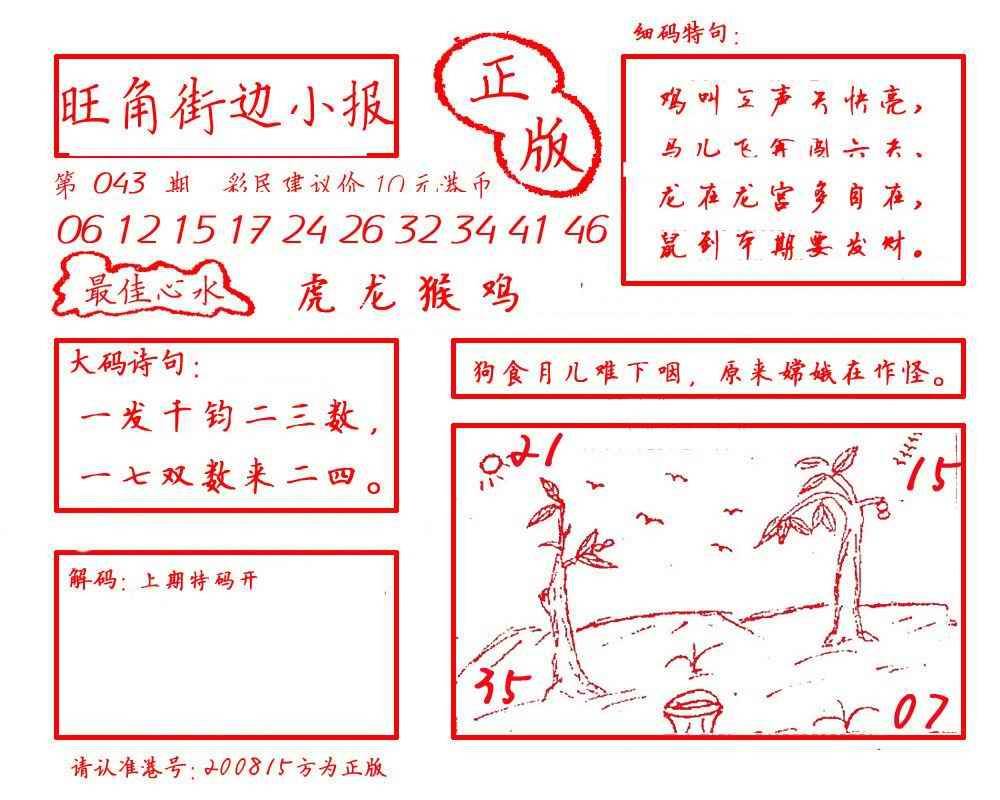 旺角街边小报
正版
第 043 期 彩民建议价10元港币
06 12 15 17 24 26 32 34 41 46
最佳心水 虎龙猴鸡
细码特句：
鸡叫三声天快亮，
马儿飞奔闯六关、
龙在龙宫多自在，
鼠到本期要发财。
大码诗句：
一发千钧二三数，
一七双数来二四。
狗食月儿难下咽，原来嫦娥在作怪。
21
15
35
07
解码：上期特码开
请认准港号：200815方为正版